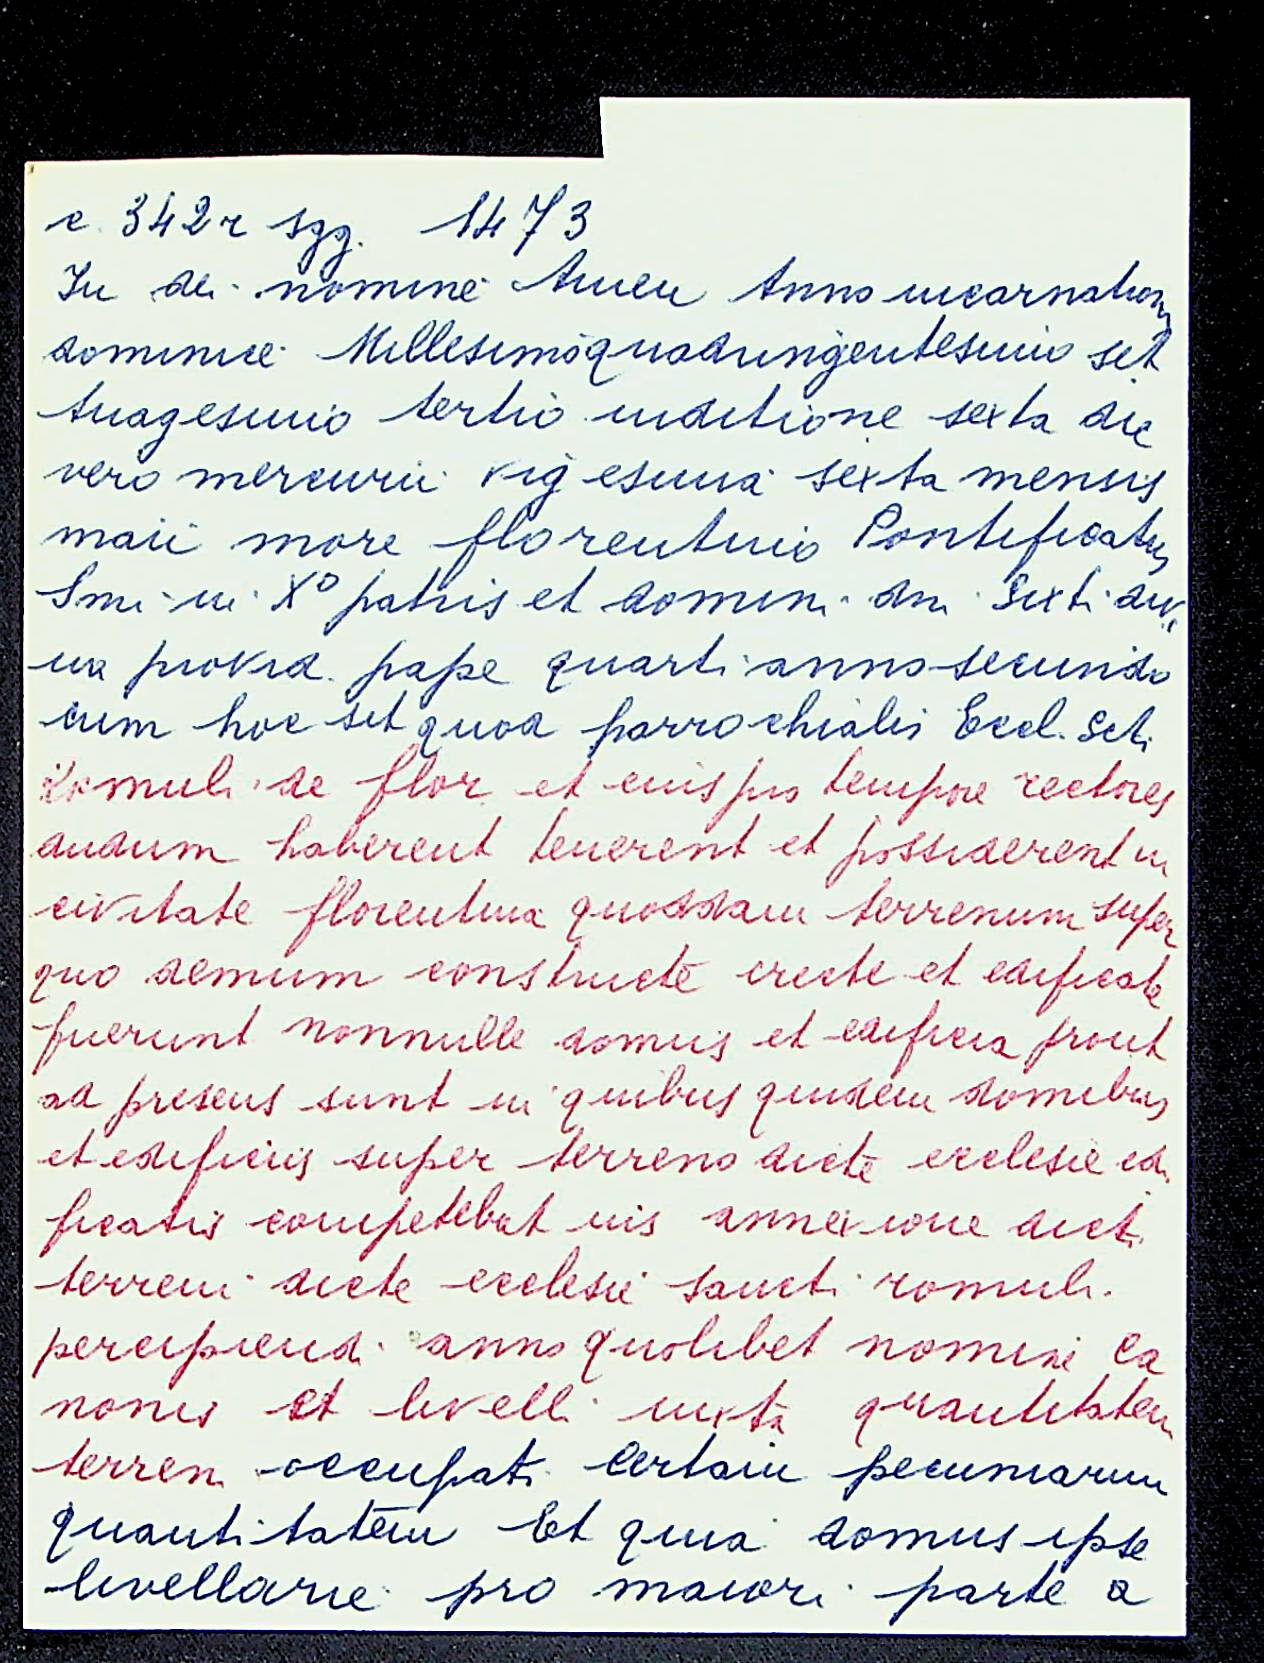 c. 342r sgg. 1473
In dei nomine Amen Anno incarnation
dominice Millesimoquadringentesimo set
tuagesimo tertio inditione sexta die
vero mercurii vigesima sexta mensis
maii more florentino Pontificatus
Smi in Xo patris et domini dni Sixti divi
na provid. pape quarti anno secundo
cum hoc sit quod parrochialis Eccl. Scti
Romuli de flor et eius pro tempore rectores
dudum haberent tenerent et possiderent in
civitate florentina quoddam terrenum super
quo demum constructe erecte et edificate
fuerunt nonnulle domus et edificia prout
ad presens sunt in quibus quidem domibus
et edificiis super terreno dicte ecclesie edi
ficatis competebat ius annexione dicti
terreni dicte ecclesie sancti romuli
percipiendi anno quolibet nomine ca
nonis et livelli iuxta quantitatem
terreni occupati certam pecuniarum
quantitatem Et quia domus ipse
livellarie pro maiori parte a